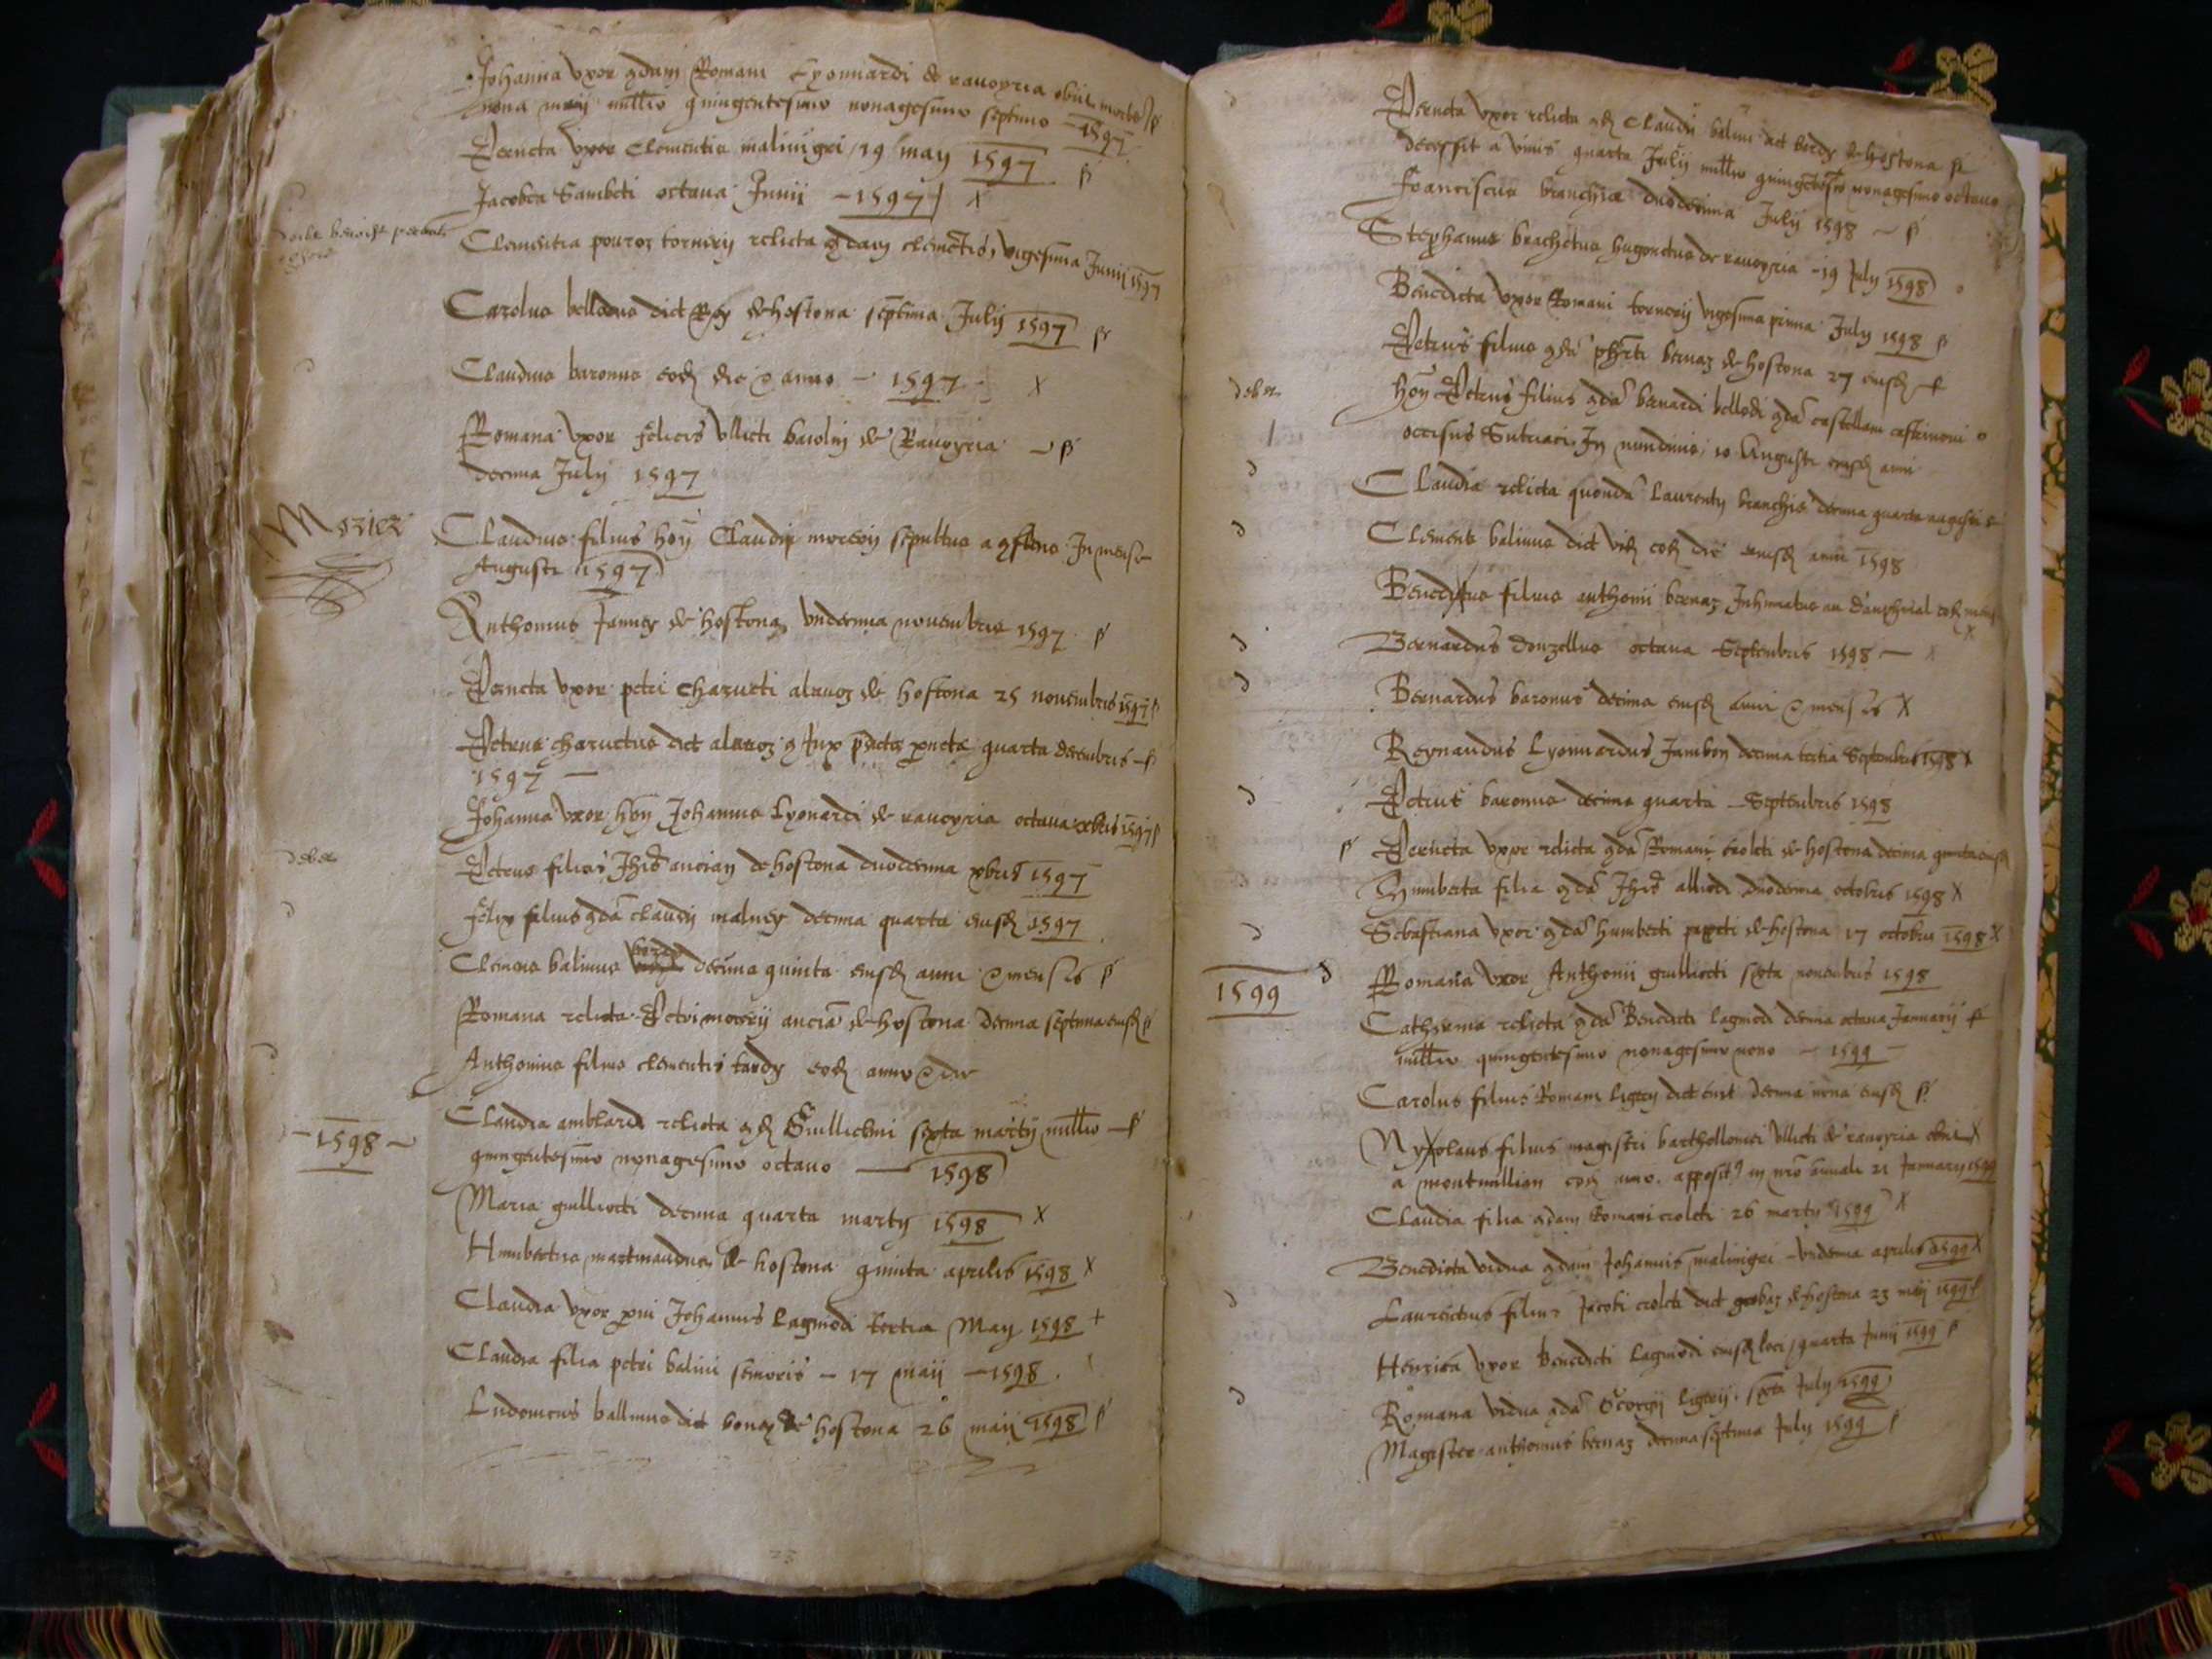 Johanna uxor qdam Romani Lyonnardi de ravoyria obiit
nona maij millio quingentesimo nonagesimo septimo 1597
Perneta uxor Clementis malinigri 19 may 1597
Jacobea Sambeti octava Junii 1597 X
Clementia pouroz tornerij relicta qdam clemetis vigesima Junij 1597
Carolus bellodus dict Rey de hostona septima Julij 1597
Claudius baronus eod die & anno 1597 X
Romana uxor felicis ullieti de Ravoyria
decima July 1597
Morier
Claudius filius hon Claudij morerij sepultus In mense
Augusti 1597
Anthonius Janney de hostona undecima novembris 1597
Perneta uxor petri Charueti alauoz de hostona 25 novembris 1597
Petrus charuetus dict alauoz quarta decembris
1597
Johanna uxor hon Johannis Lyonardi de ravoyria octava xbris 1597
debet
Petrus filius ancian de hostona duodecima xbris 1597
felix filius qda claudij malney decima quarta eiusd 1597
Clemens balinus decima quinta eiusd anni & mensis
Romana relicta Petri morerij ancia de hostona decima septima eiusd
Anthonius filius clementis tardy eod anno & die
1598
Claudia amblardi relicta qd Guillielmi sexta martij millio
quingentesimo nonagesimo octavo 1598
Maria gullioti decima quarta martij 1598 X
Humbertus martinandus de hostona quinta aprilis 1598 X
Claudia uxor Johannis Lagniodi tertia May 1598 +
Claudia filia petri balini senioris 17 maij 1598
Ludovicus ballinus dict de hostona 26 maij 1598
Perneta uxor relicta qd Claudij balini dict bordz de hostona
decessit a vivis quarta Julij millio quingetesio nonagesimo octavo
franciscus branchia duodecima July 1598
Stephanus brachetus hugonetus de ravoyria 19 July 1598
Benedicta uxor Romani tornerij vigesima prima July 1598
Petrus filius qda bernaz de hostona 27 eiusd
debet
hon Petrus filius qda bernardi bellodi qda castellani
occisus In nundinis 10 Augusti eiusd anni
Claudia relicta quonda Laurentij branchie decima quarta augusti
Clemens balinus dict eod die eiusd anni 1598
Benedictus filius anthonii bernaz Inhumatus au daulphinal
Bernardus donzellus octava Septembris 1598
Bernardus baronus decima eiusd anni & mensis X
Reynaudus Lyonnardus Jambon decima tertia Septembris 1598 X
Petrus baronus decima quarta Septenbris 1598
Perneta uxor relicta qda Romani croleti de hostona decima quinta eiusd
Humberta filia qda alliodi duodecima octobris 1598 X
Sebastiana uxor qda humberti de hostona 17 octobris 1598 X
1599
Romana uxor Anthonii gulliocti sexta novembris 1598
Catherina relicta qda Benedicti lagniodi decima octava Januarij
millio quingentesimo nonagesimo nono 1599
Carolus filius Romani ligerij dict decima nona eiusd
Nycolaus filius magistri bartholomei Ullieti de ravoyria obiit
a montmillian eod anno 21 Januarij 1599
Claudia filia qdam Romani croleti 26 martij 1599 X
Benedicta vidua qdam Johannis malinigri undecima aprilis 1599 X
Laurentius filius Jacobi croleti dict de hostona 23 maij 1599
Henrica uxor benedicti Lagniodi eiusd loci quarta Junij 1599
Romana vidua qda Georgij ligerij sexta July 1599
Magister anthonius bernaz decima septima July 1599